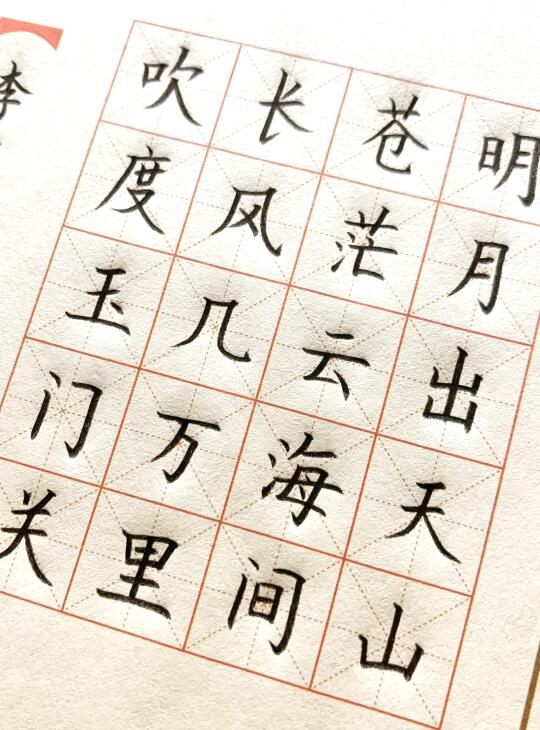 明月出天山
苍茫云海间
长风几万里
吹度玉门关
李